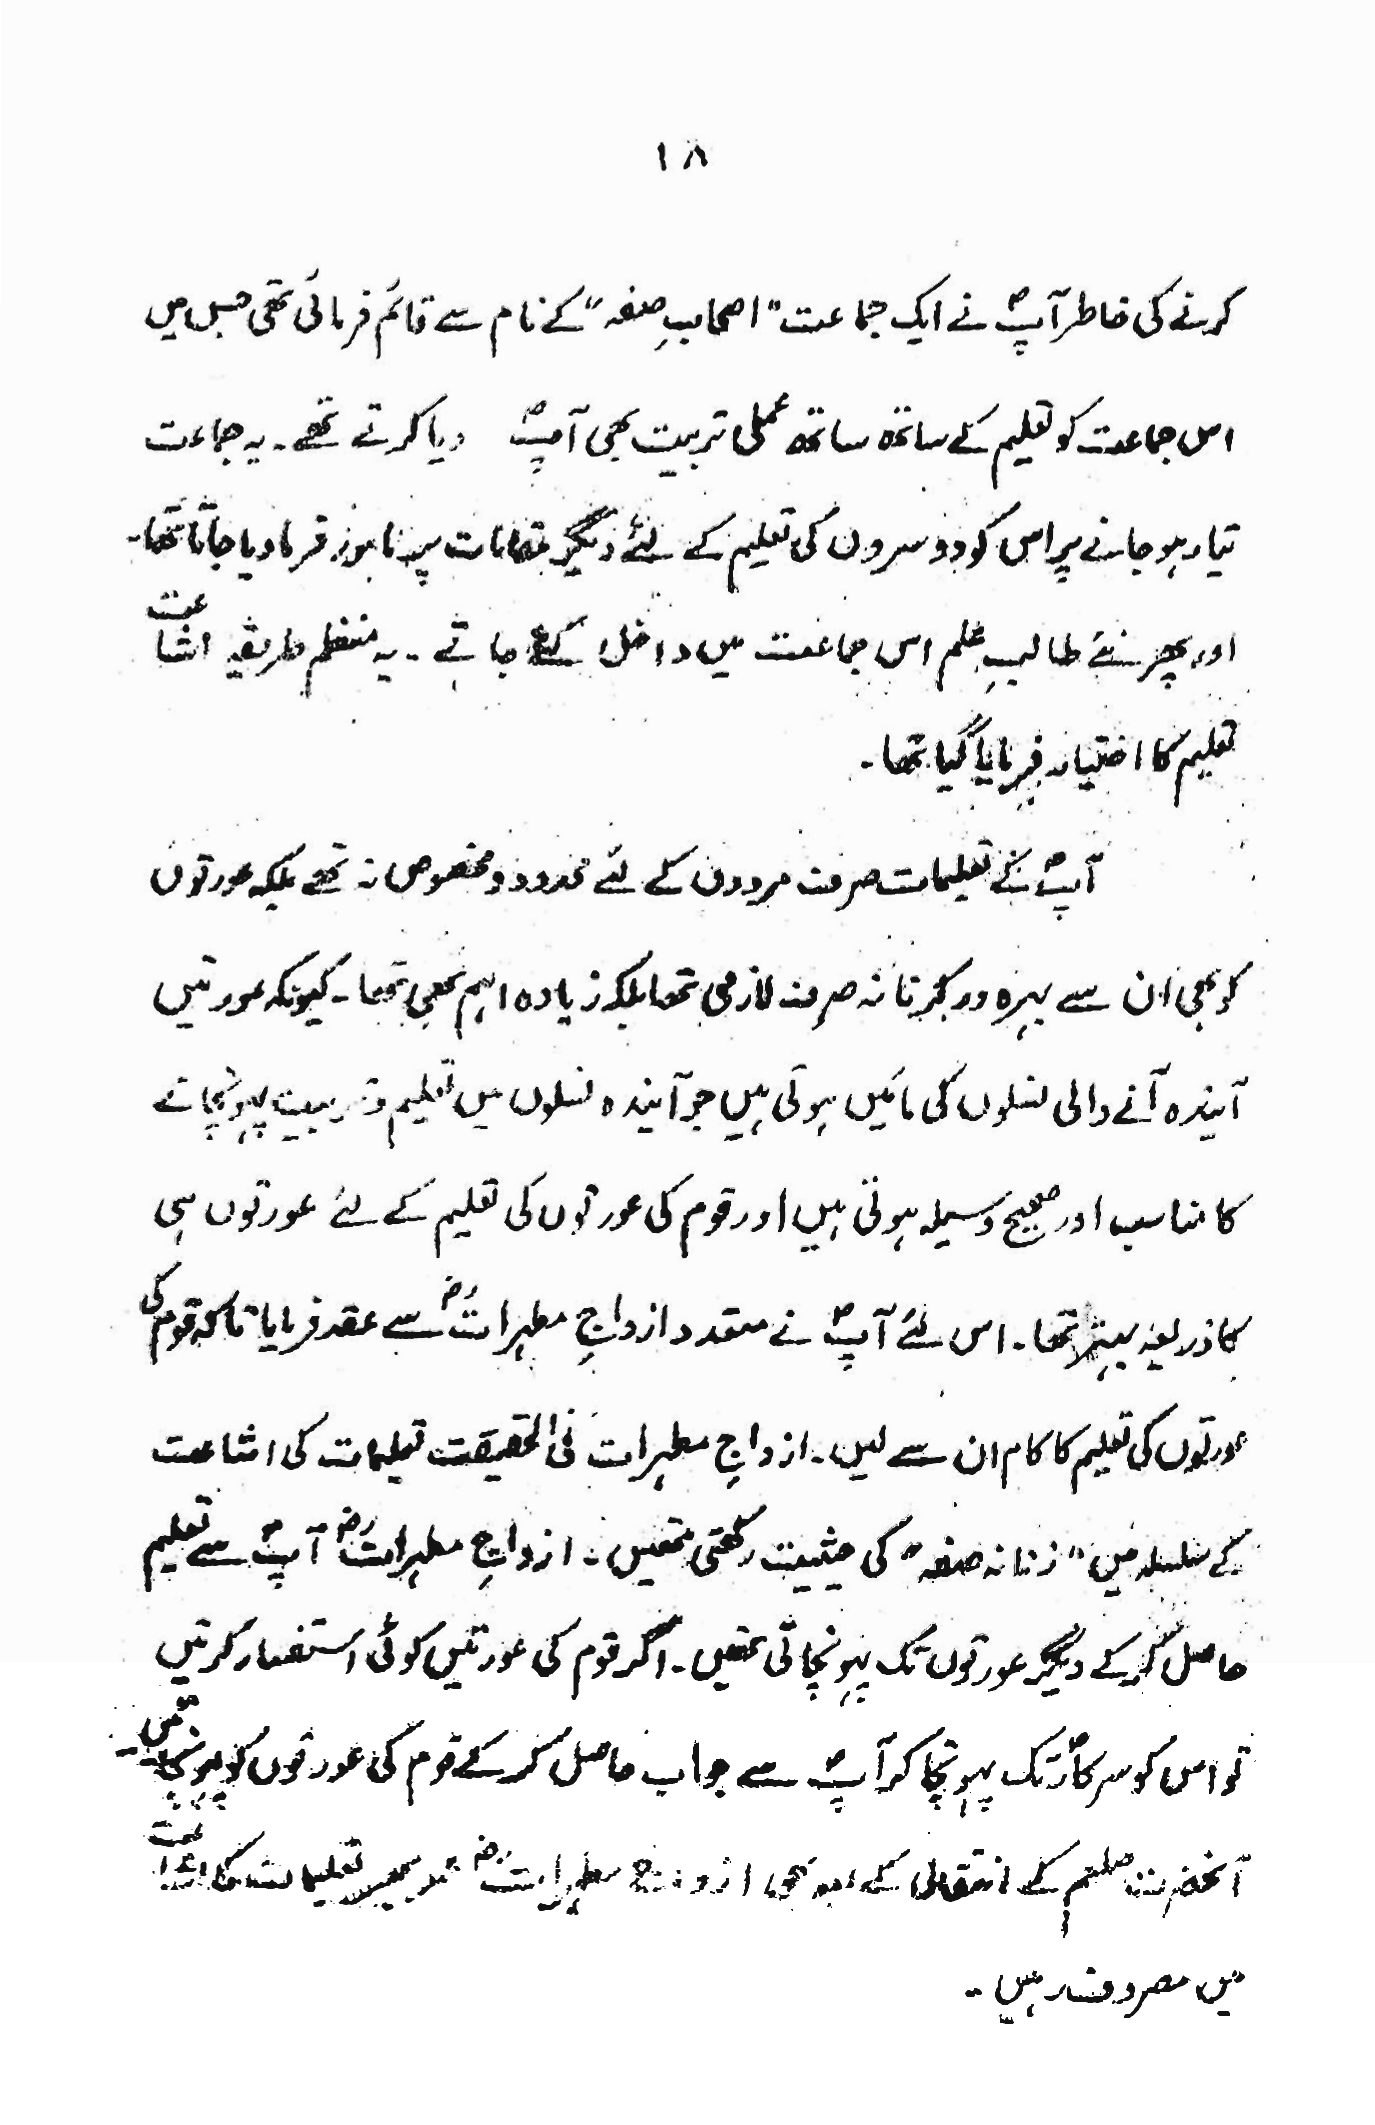 ۱۸
کرنے کی خاطر آپؐ نے ایک جماعت "اصحابِ صفہ" کے نام سے قائم فرمائی تھی جس میں
اس جماعت کو تعلیم کے ساتھ ساتھ عملی تربیت بھی آپؐ دیا کرتے تھے۔ یہ جماعت
تیار ہو جانے پر اس کو دوسروں کی تعلیم کے لئے دیگر مقامات پر نامور فرما دیا جاتا تھا۔
اور پھر نئے طالبِ علم اس جماعت میں داخل کئے جاتے۔ یہ منظم طریقہ اشاعت
تعلیم کا اختیار فرمایا گیا تھا۔
آپؐ کے تعلیمات صرف مردوں کے لئے محدود و مخصوص نہ تھے بلکہ عورتوں
کو بھی ان سے بہرہ ور کرنا نہ صرف لازمی تھا بلکہ زیادہ اہم بھی تھا۔ کیونکہ عورتیں
آیندہ آنے والی نسلوں کی مائیں ہوتی ہیں جو آیندہ نسلوں میں تعلیم و تربیت پہونچانے
کا مناسب اور صحیح وسیلہ ہوتی ہیں اور قوم کی عورتوں کی تعلیم کے لئے عورتوں ہی
کا ذریعہ بہتر تھا۔ اس لئے آپؐ نے متعدد ازواجِ مطہراتؓ سے عقد فرمایا تاکہ قوم کی
عورتوں کی تعلیم کا کام ان سے لیں۔ ازواجِ مطہرات فی الحقیقت تعلیمات کی اشاعت
کے سلسلہ میں "زنانہ صفہ" کی حیثیت رکھتی تھیں۔ ازواجِ مطہراتؓ آپؐ سے تعلیم
حاصل کر کے دیگر عورتوں تک پہونچاتی تھیں۔ اگر قوم کی عورتیں کوئی استفسار کرتیں
تو اس کو سرکارؐ تک پہونچا کر آپؐ سے جواب حاصل کر کے قوم کی عورتوں کو پہونچاتیں۔
آنحضرت صلعم کے انتقال کے بعد بھی ازواج مطہراتؓ تعلیمات کی اشاعت
میں مصروف رہیں۔